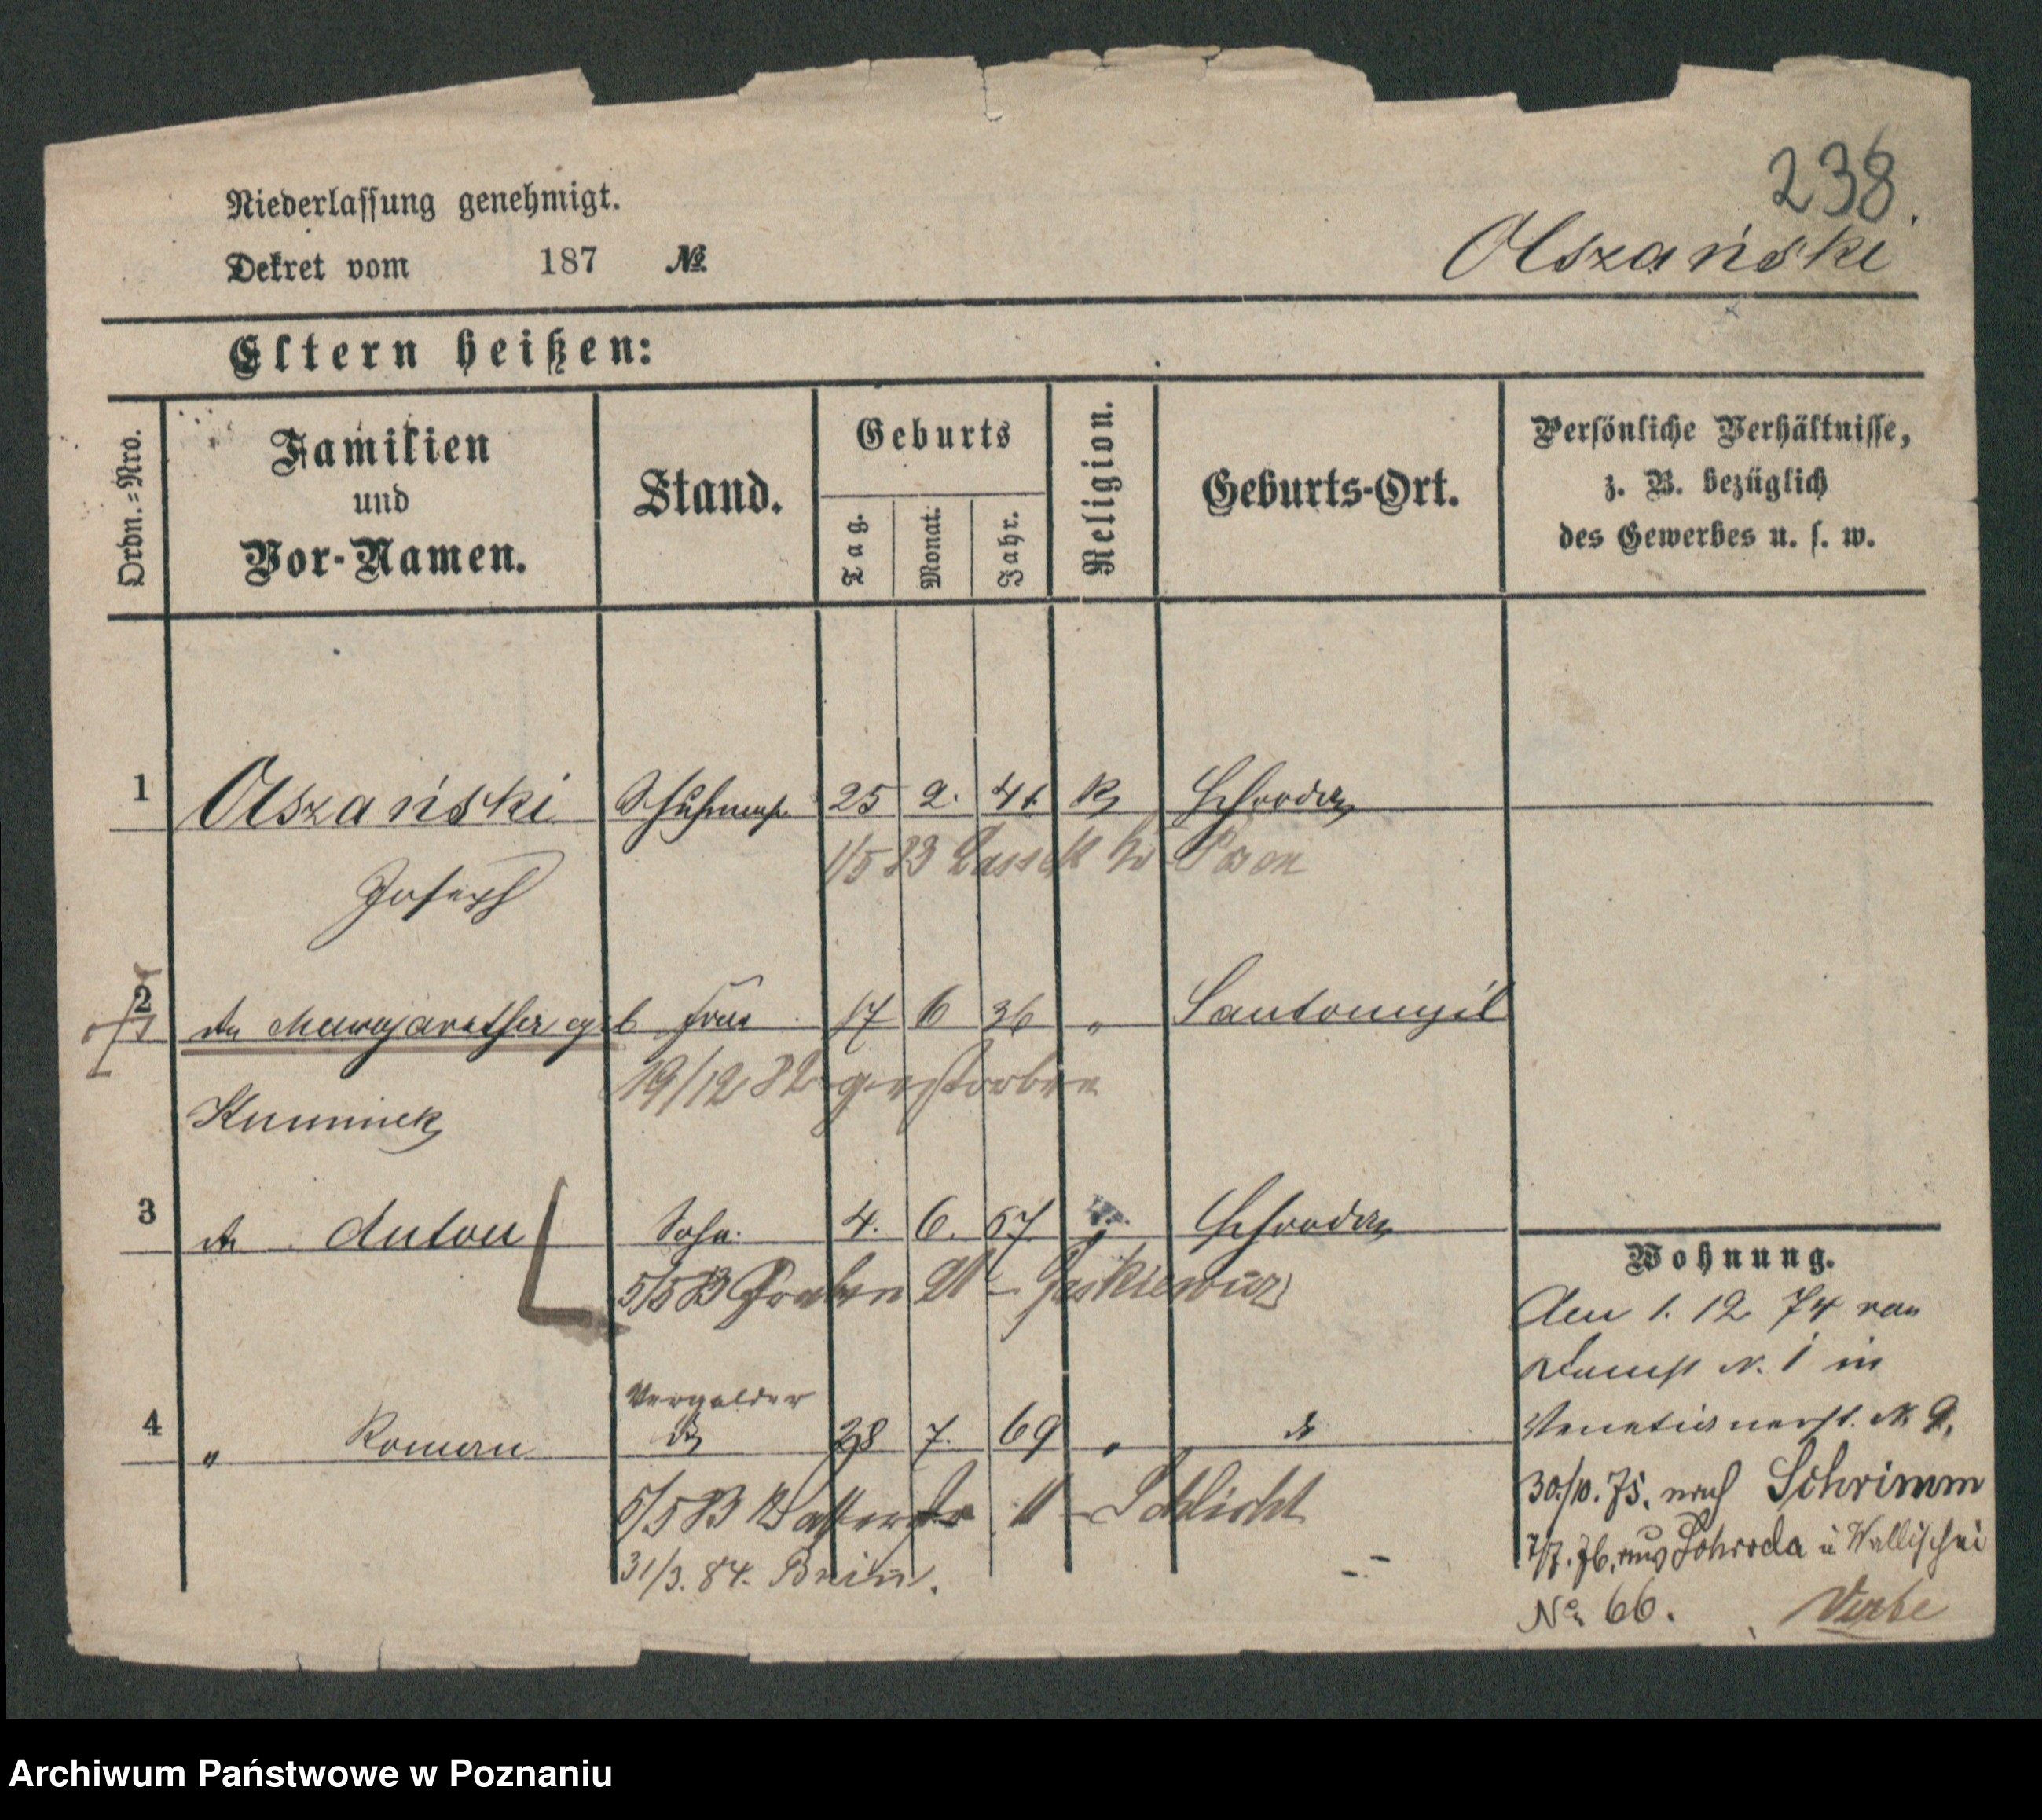 238.
Niederlassung genehmigt.
Dekret vom 187 №
Olszański
Eltern heißen:
Ordn.-Nro.
Familien und Vor-Namen.
Stand.
Geburts
Tag.
Monat.
Jahr.
Religion.
Geburts-Ort.
Persönliche Verhältnisse,
z. B. bezüglich
des Gewerbes u. s. w.
1 Olszański 25 2. 41 K Schroda
Joseph
1/5 83 Lassek bei Posen
2 do Margarethe geb Frau 17 6 36 " Santomyśl
19/12 82 gestorben
3 do Anton Sohn. 4. 6. 67. " Schroda
5/5 83 Graben 21 - Jaskiewicz
Vergolder
4 " Roman do 28 7. 69 " do
5/5 83 11 - Schlicht
31/3. 84.
Wohnung.
Den 1. 12 74 von
Domst N. 1 in
Venetianerst. N. 9.
30./10. 75. nach Schrimm
7/7. 76. aus Schroda in Wallischei
No 66.
Archiwum Państwowe w Poznaniu